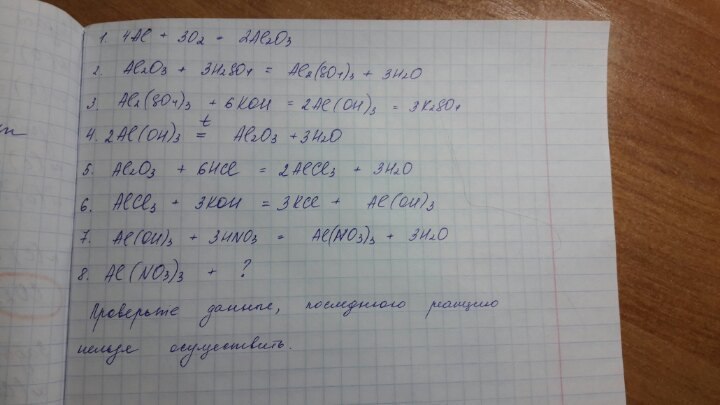 1. 4Al + 3O2 = 2Al2O3
2. Al2O3 + 3H2SO4 = Al2(SO4)3 + 3H2O
3. Al2(SO4)3 + 6KOH = 2Al(OH)3 = 3K2SO4
t
4. 2Al(OH)3 = Al2O3 + 3H2O
5. Al2O3 + 6HCl = 2AlCl3 + 3H2O
6. AlCl3 + 3KOH = 3KCl + Al(OH)3
7. Al(OH)3 + 3HNO3 = Al(NO3)3 + 3H2O
8. Al(NO3)3 + ?
Проверьте данные, последнюю реакцию
нельзя осуществить.